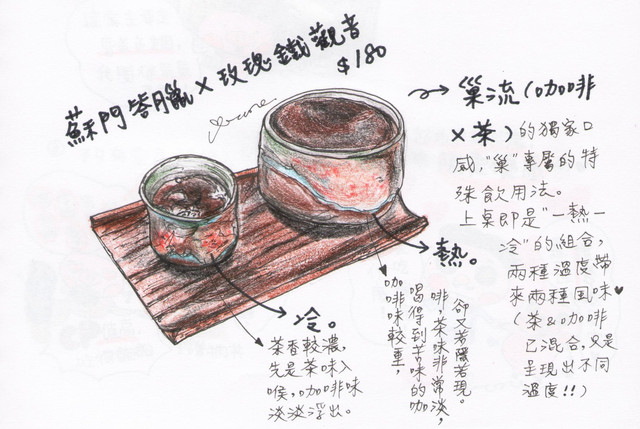 蘇門答臘×玫瑰鐵觀音
$180
巢流(咖啡
×茶)的獨家口
感,"巢"專屬的特
殊飲用法。
上桌即是"一熱一
冷"的組合,
兩種溫度帶
來兩種風味♥
(茶&咖啡
已混合,又是
呈現出不同
溫度!!)
熱。
咖啡味較重,
喝得到苦味的咖
啡,茶味非常淡,
卻又若隱若現。
冷。
茶香較濃,
先是茶味入
喉,咖啡味
淡淡浮出。